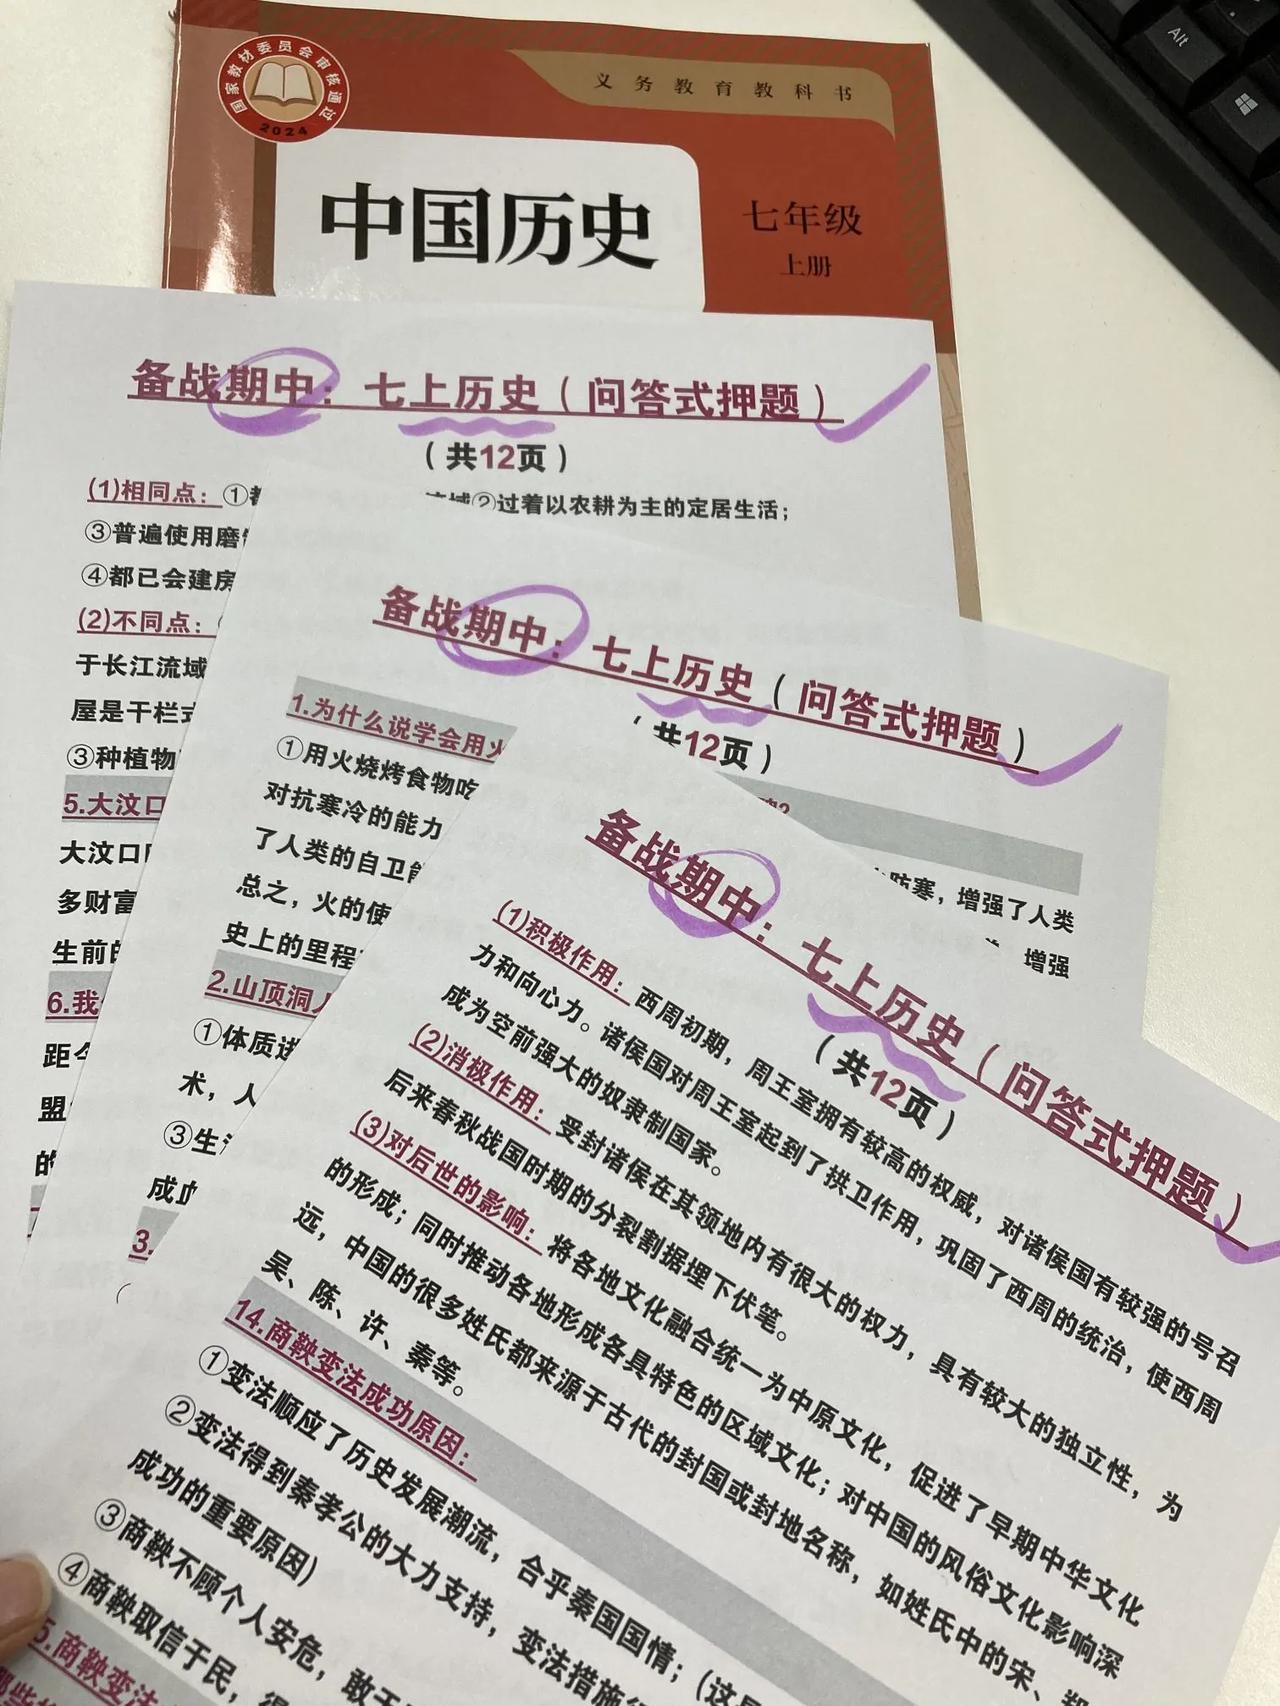 国家教材委员会审核通过
2024
义务教育教科书
中国历史
七年级
上册
Alt
备战期中：七上历史（问答式押题）
（共12页）
(1)相同点：①
②过着以农耕为主的定居生活；
③普遍使用磨
④都已会建房
(2)不同点：
于长江流域
屋是干栏式
③种植物
5.大汶口
大汶口
多财富
生前的
6.我
距今
盟
的
备战期中：七上历史（问答式押题）
（共12页）
1.为什么说学会用火
①用火烧烤食物吃
防寒，增强了人类
对抗寒冷的能力
增强
了人类的自卫能
总之，火的使
史上的里程
2.山顶洞人
①体质进
术，人
③生活
成血
3.
备战期中：七上历史（问答式押题）
（共12页）
(1)积极作用：西周初期，周王室拥有较高的权威，对诸侯国有较强的号召
力和向心力。诸侯国对周王室起到了拱卫作用，巩固了西周的统治，使西周
成为空前强大的奴隶制国家。
(2)消极作用：受封诸侯在其领地内有很大的权力，具有较大的独立性，为
后来春秋战国时期的分裂割据埋下伏笔。
(3)对后世的影响：将各地文化融合统一为中原文化，促进了早期中华文化
的形成；同时推动各地形成各具特色的区域文化；对中国的风俗文化影响深
远，中国的很多姓氏都来源于古代的封国或封地名称，如姓氏中的宋、郑
吴、陈、许、秦等。
14.商鞅变法成功原因：
①变法顺应了历史发展潮流，合乎秦国国情；（这是
②变法得到秦孝公的大力支持，变法措施
成功的重要原因)
③商鞅不顾个人安危，敢于
④商鞅取信于民，得
5.商鞅变法
哪些